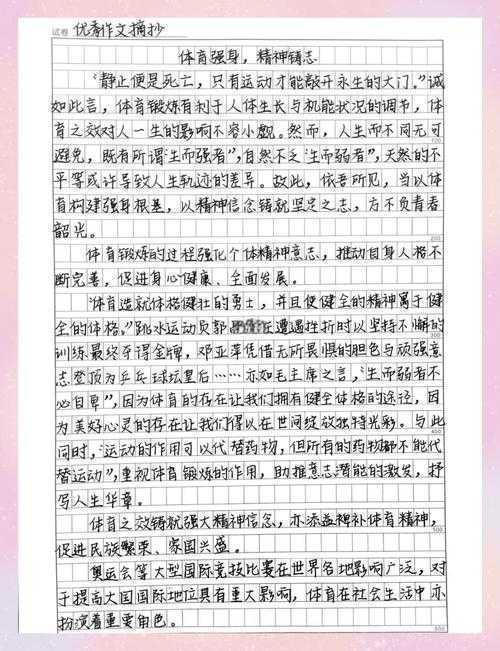 试卷 优秀作文摘抄
体育强身，精神铸志
“静止便是死亡，只有运动才能敲开永生的大门。”诚
如此言，体育锻炼有利于人体生长与机能状况的调节，体
育之效对人一生的影响不容小觑。然而，人生而不同无可
100
避免，既有所谓“生而强者”，自然不乏“生而弱者”，天然的不
平等或许导致人生轨迹的差异。故此，依吾所见，当以体
育构建强身根基，以精神信念铸就坚定之志，方不负青春
韶光。
200
体育锻炼的过程强化个体精神意志，推动自身人格不
断完善，促进身心健康、全面发展。
“体育造就体格健壮的勇士，并且使健全的精神寓于健
全的体格。”跳水运动员郭 遭遇挫折时以坚持不懈的
300
训练最终夺得金牌，邓亚萍凭借无所畏惧的胆色与顽强意
志登顶为乒乓球坛皇后……亦如毛主席之言，“生而弱者不
必自卑”，因为体育的存在让我们拥有健全体格的途径，因
为美好心灵的存在让我们得以在世间绽放独特光彩。与此
400
同时，“运动的作用可以代替药物，但所有的药物都不能代
替运动”，重视体育锻炼的作用，助推意志潜能的激发，抒
写人生华章。
体育之效铸就强大精神信念，亦添益裨补体育精神，
500
促进民族繁荣、家国兴盛。
奥运会等大型国际竞技比赛在世界各地影响广泛，对
于提高大国国际地位具有重大影响，体育在社会生活中亦
扮演着重要角色。
600